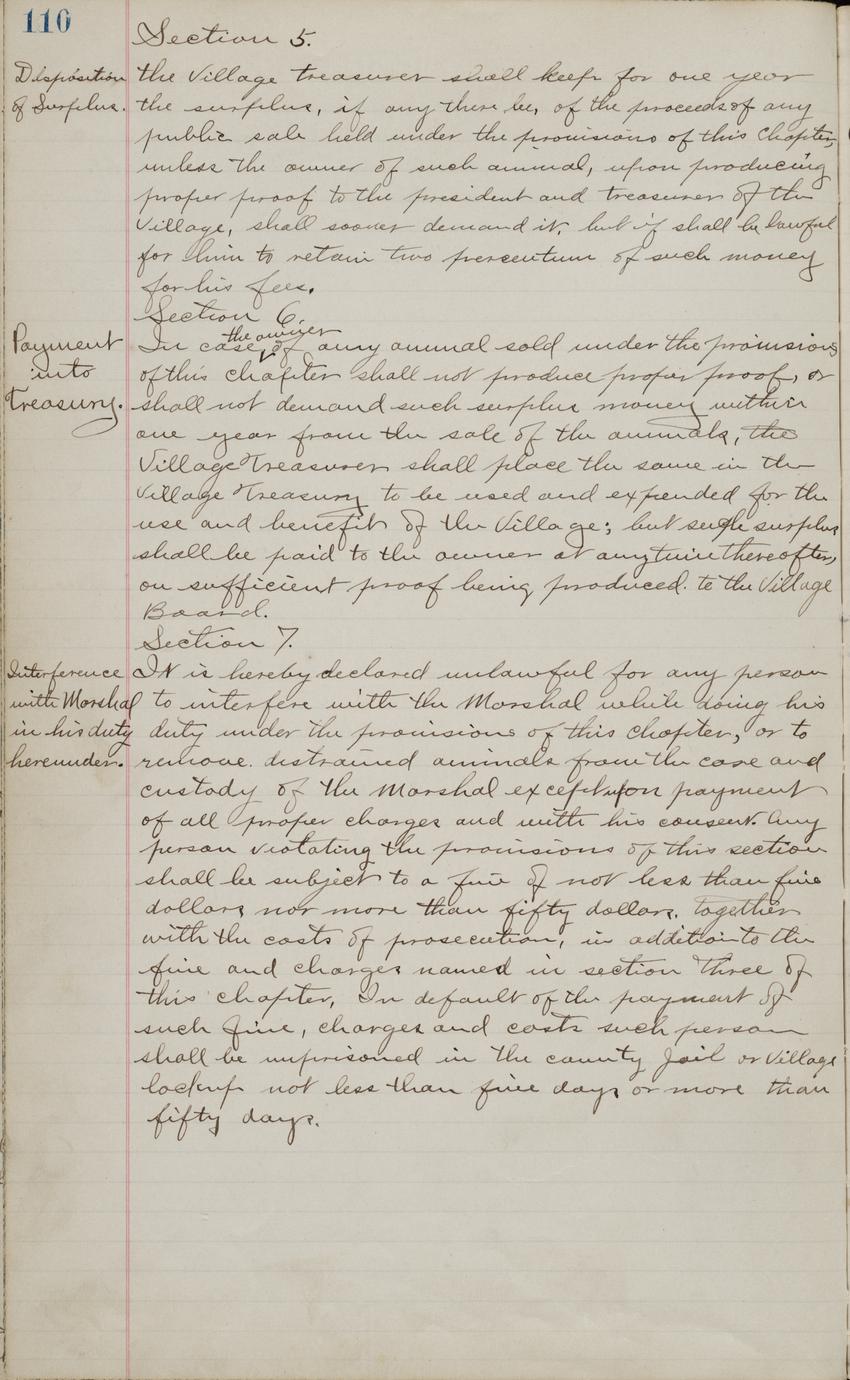 110
Section 5.
Disposition
of Surplus.
the Village treasurer shall keep for one year
the surplus, if any there be, of the proceeds of any
public sale held under the provisions of this Chapter,
unless the owner of such animal, upon producing
proper proof to the president and treasurer of the
Village, shall sooner demand it, but it shall be lawful
for him to retain two percentum of such money
for his fees.
Section 6.
Payment
into
Treasury.
In case the owner of any animal sold under the provisions
of this chapter shall not produce proper proof, or
shall not demand such surplus money within
one year from the sale of the animals, the
Village Treasurer shall place the same in the
Village Treasury to be used and expended for the
use and benefit of the Village; but such surplus
shall be paid to the owner at anytime thereafter,
on sufficient proof being produced. to the Village
Board.
Section 7.
Interference
with Marshal
in his duty
hereunder.
It is hereby declared unlawful for any person
to interfere with the Marshal while doing his
duty under the provisions of this chapter, or to
remove. distrained animals from the care and
custody of the Marshal except upon payment
of all proper charges and with his consent. Any
person violating the provisions of this section
shall be subject to a fine of not less than five
dollars nor more than fifty dollars. together
with the costs of prosecution, in addition to the
fine and charges named in section three of
this chapter. In default of the payment of
such fine, charges and costs such person
shall be imprisoned in the county jail or Village
lockup not less than five days or more than
fifty days.